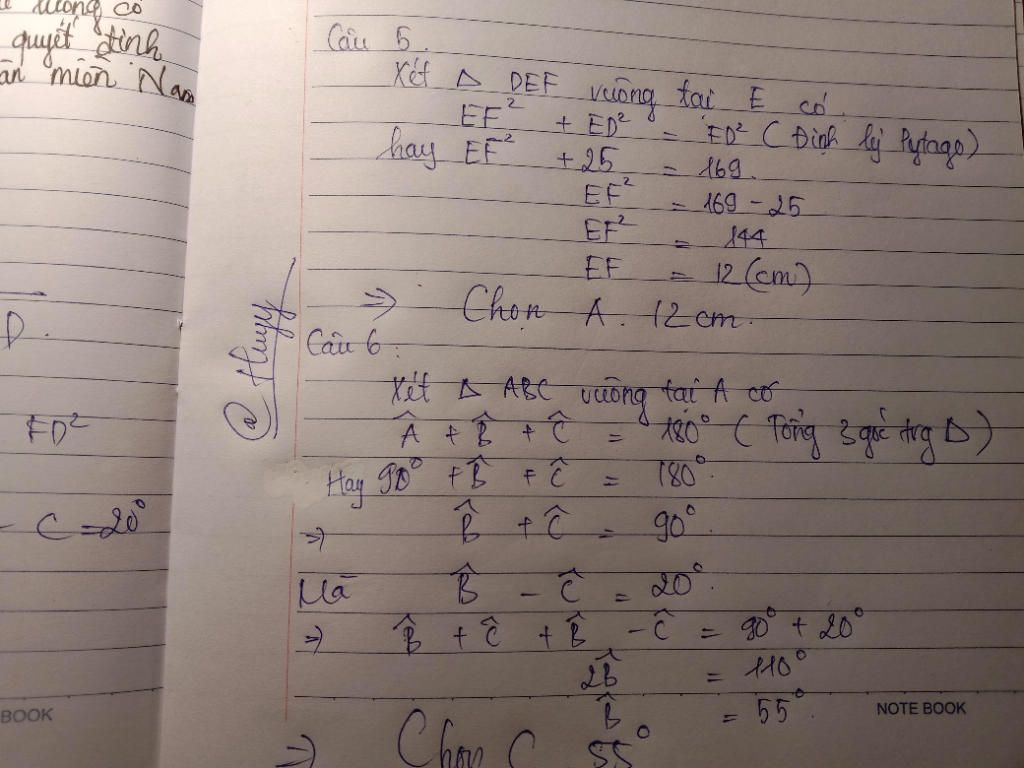 lượng có
quyết định
miền Nam
D.
FD²
- C = 20°
BOOK
@Huyy
Câu 5.
Xét Δ DEF vuông tại E có.
EF² + ED² = FD² (Định lý Pytago)
hay EF² + 25 = 169.
EF² = 169 - 25
EF² = 144
EF = 12 (cm)
=> Chọn A. 12 cm.
Câu 6:
Xét Δ ABC vuông tại A có
Â + B̂ + Ĉ = 180° (Tổng 3 góc trg Δ)
Hay 90° + B̂ + Ĉ = 180°.
=> B̂ + Ĉ = 90°.
Mà B̂ - Ĉ = 20°.
=> B̂ + Ĉ + B̂ - Ĉ = 90° + 20°
2B̂ = 110°
B̂ = 55°.
NOTE BOOK
=> Chọn C 55°